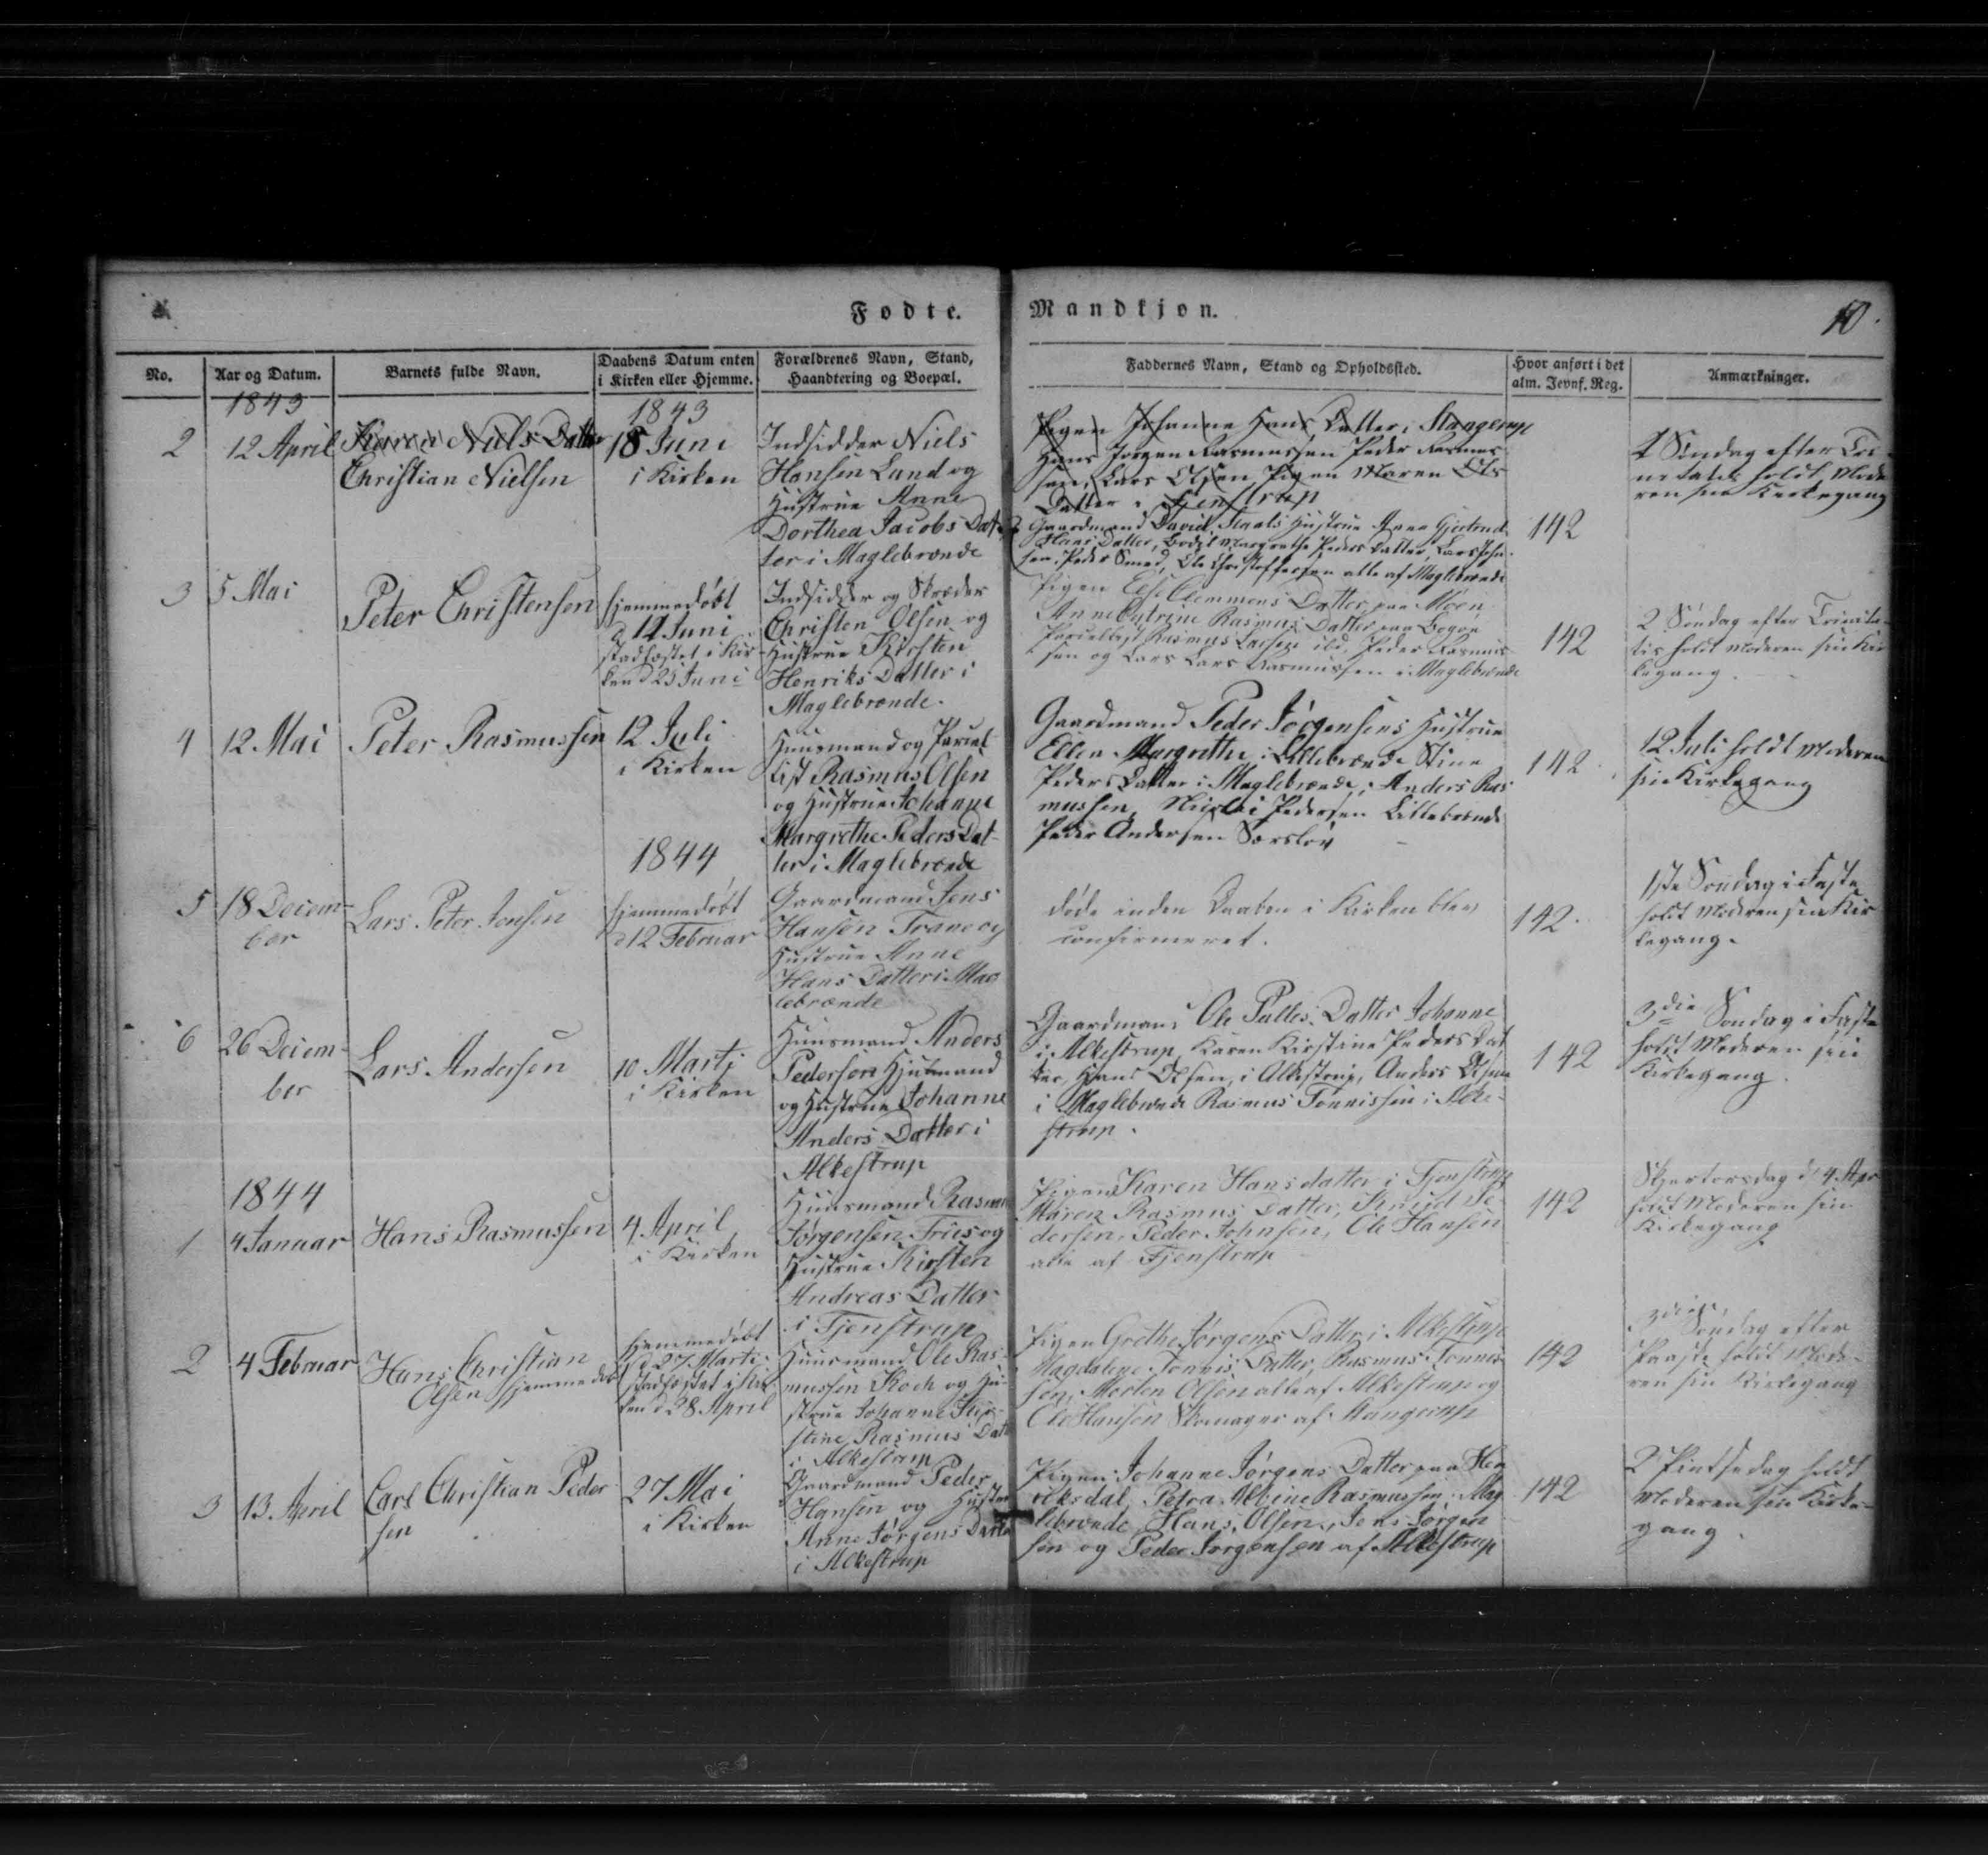 Fødte. Mandkjøn. 10.
No.
Aar og Datum.
Barnets fulde Navn.
Daabens Datum enten
i Kirken eller Hjemme.
Forældrenes Navn, Stand,
Haandtering og Boepæl.
Faddernes Navn, Stand og Opholdssted.
Hvor anført i det
alm. Jevnf. Reg.
Anmærkninger.
1843
2
12 April
Karen Niels Datter
Christian Nielsen
1843
18 Juni
i Kirken
Indsidder Niels
Hansen Lund og
Hustrue Anne
Dorthea Jacobs Dat
ter i Maglebrænde
Pigen Johanne Hans Datter i Stangerup
Hans Jørgen Rasmussen Peder Rasmus
sen, Lars Olsen Pigen Maren Ols
Datter i Tjenstrup
Gaardmand David Staals Hustrue Anne Gjertrud
Hans Datter, Bodil Margrethe Peders Datter, Lars Joh
sen Peder Smed, Ole Christoffersen alle af Maglebrænde
142
1 Søndag efter Tri
nitatis holdt Mode
ren sin Kirkegang
3
5 Mai
Peter Christensen
hjemmedøbt
d 12 Juni
stadfæstet i Kir
ken d 25 Juni
Indsidder og Skræder
Christen Olsen og
Hustrue Kirsten
Henriks Datter i
Maglebrænde.
Pigen Else Clemmens Datter paa Møen
Anne Catrine Rasmus Datter paa Bogøe
Parcellist Rasmus Larsen ibd, Peder Rasmus
sen og Lars Lars Rasmussen i Maglebrænde
142
2 Søndag efter Trinita
tis holdt Moderen sin Kir
kegang.
4
12 Mai
Peter Rasmussen
12 Juli
i Kirken
Huusmand og Parcel
list Rasmus Olsen
og Hustrue Johanne
Margrethe Peders Dat
ter i Maglebrænde
Gaardmand Peder Jørgensens Hustrue
Ellen Margrethe i Lillebrænde Stine
Peders Datter i Maglebrænde, Anders Ras
mussen, Nicolai Pedersen Lillebrænde
Peder Andersen Sørslov
142
12 Juli holdt Moderen
sin Kirkegang
1844
5
18 Decem
ber
Lars Peter Jensen
hjemmedøbt
d 12 Februar
Gaardmand Jens
Hansen Trane og
Hustrue Anne
Hans Datter i Mag
lebrænde
døde inden Daaben i Kirken blev
confirmeret.
142.
1ste Søndag i Faste
holdt Moderen sin Kir
kegang.
6
26 Decem
ber
Lars Andersen
10 Martj
i Kirken
Huusmand Anders
Pedersen Hjulmand
og Hustrue Johanne
Anders Datter i
Alkestrup
Gaardmand Ole Palles Datter Johanne
i Alkestrup, Karen Kirstine Peders Dat
ter, Hans Olsen, i Alkestrup, Anders Olsen
i Maglebrænde Rasmus Tønnissen i Alke
strup.
142
3die Søndag i Faste
holdt Moderen sin
Kirkegang.
1844
1
4 Januar
Hans Rasmussen
4 April
i Kirken
Huusmand Rasmus
Jørgensen Friis og
Hustrue Kirsten
Andreas Datter
i Tjenstrup
Pigen Karen Hansdatter i Tjenstrup
Maren Rasmus Datter, Knud Pe
dersen, Peder Johnsen, Ole Hansen
alle af Tjenstrup
142
Skjertorsdag d 4 Apr
holdt Moderen sin
Kirkegang
2
4 Februar
Hans Christian
Olsen hjemmedøbt
Hjemmedøbt
d 27 Marti
stadfæstet i Kir
ken d 28 April
Huusmand Ole Ras
mussen Koch og Hu
strue Johanne Kir
stine Rasmus Datter
i Alkestrup
Pigen Grethe Jørgens Datter i Alkestrup
Magdalene Tønnis Datter, Rasmus Tønnis
sen, Morten Olsen alle af Alkestrup og
Ole Hansen Skomager af Stangerup
142
3die Søndag efter
Paaske holdt Mode
ren sin Kirkegang
3
13. April
Carl Christian Peder
sen
27 Mai
i Kirken
Gaardmand Peder
Hansen og Hustrue
Anne Jørgens Datter
i Alkestrup
Pigen Johanne Jørgens Datter paa Hen
riksdal, Petra Albine Rasmussen i Mag
lebrænde, Hans Olsen, Jens Jørgen
sen og Peder Jørgensen af Alkestrup
142
2 Pintsedag holdt
Moderen sin Kirke
gang.